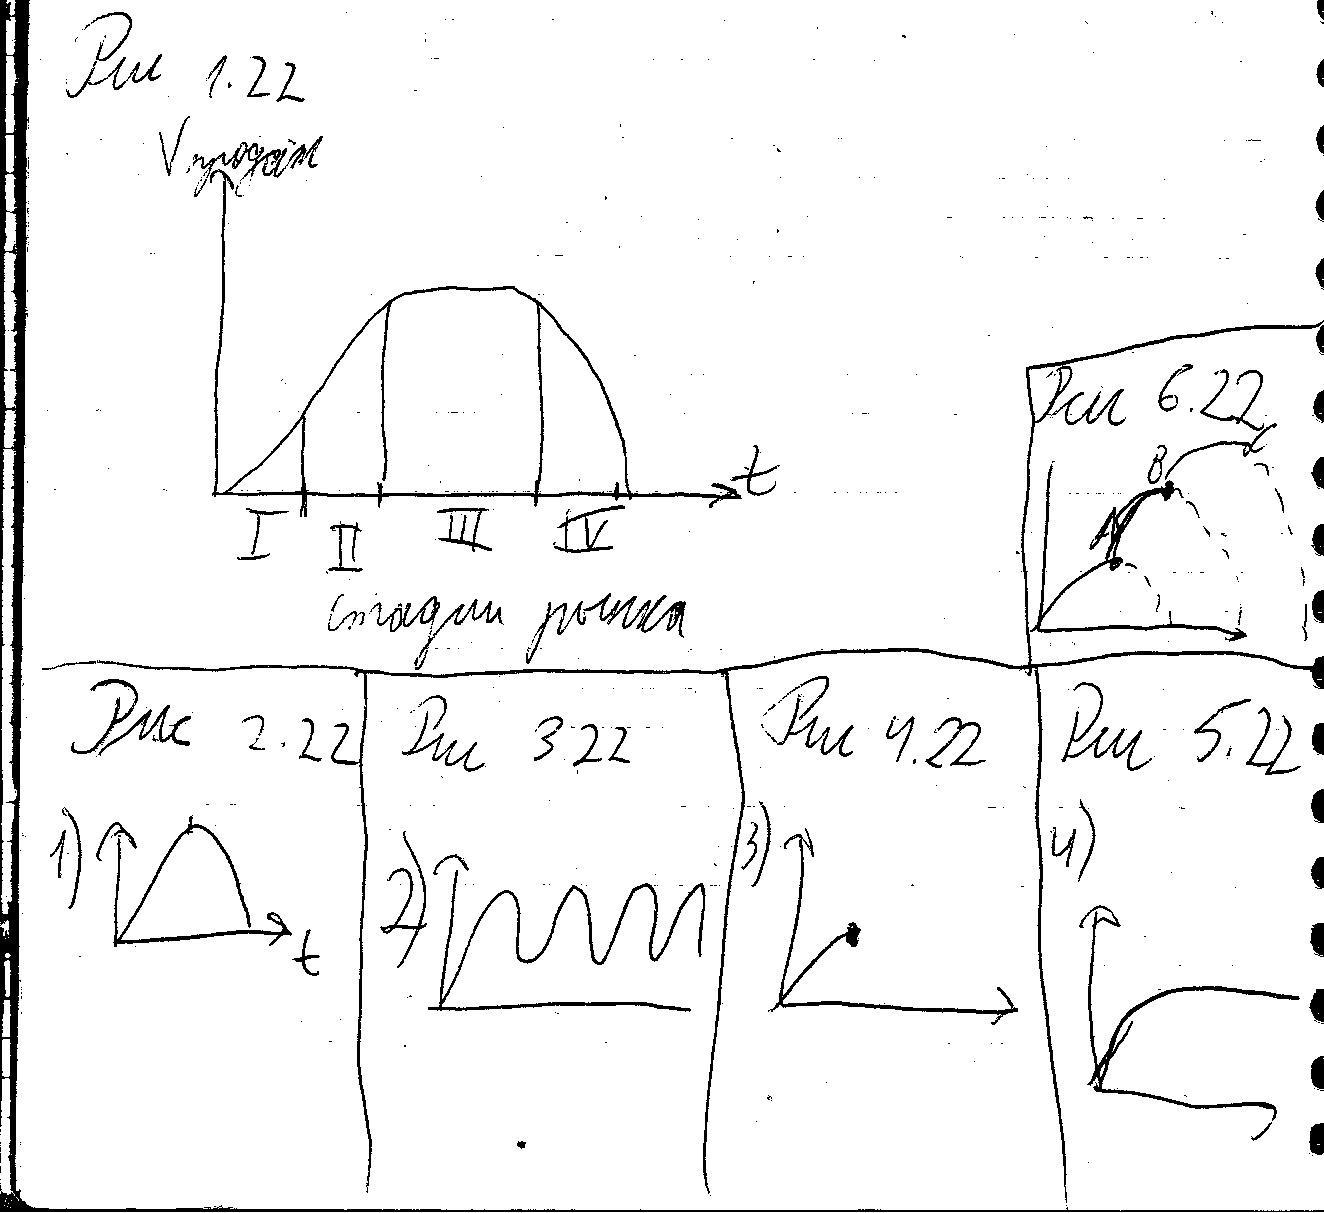 Рис 1.22
V продаж
t
I II III IV
стадии рынка
Рис 6.22
A B C
Рис 2.22
1)
t
Рис 3.22
2)
Рис 4.22
3)
Рис 5.22
4)